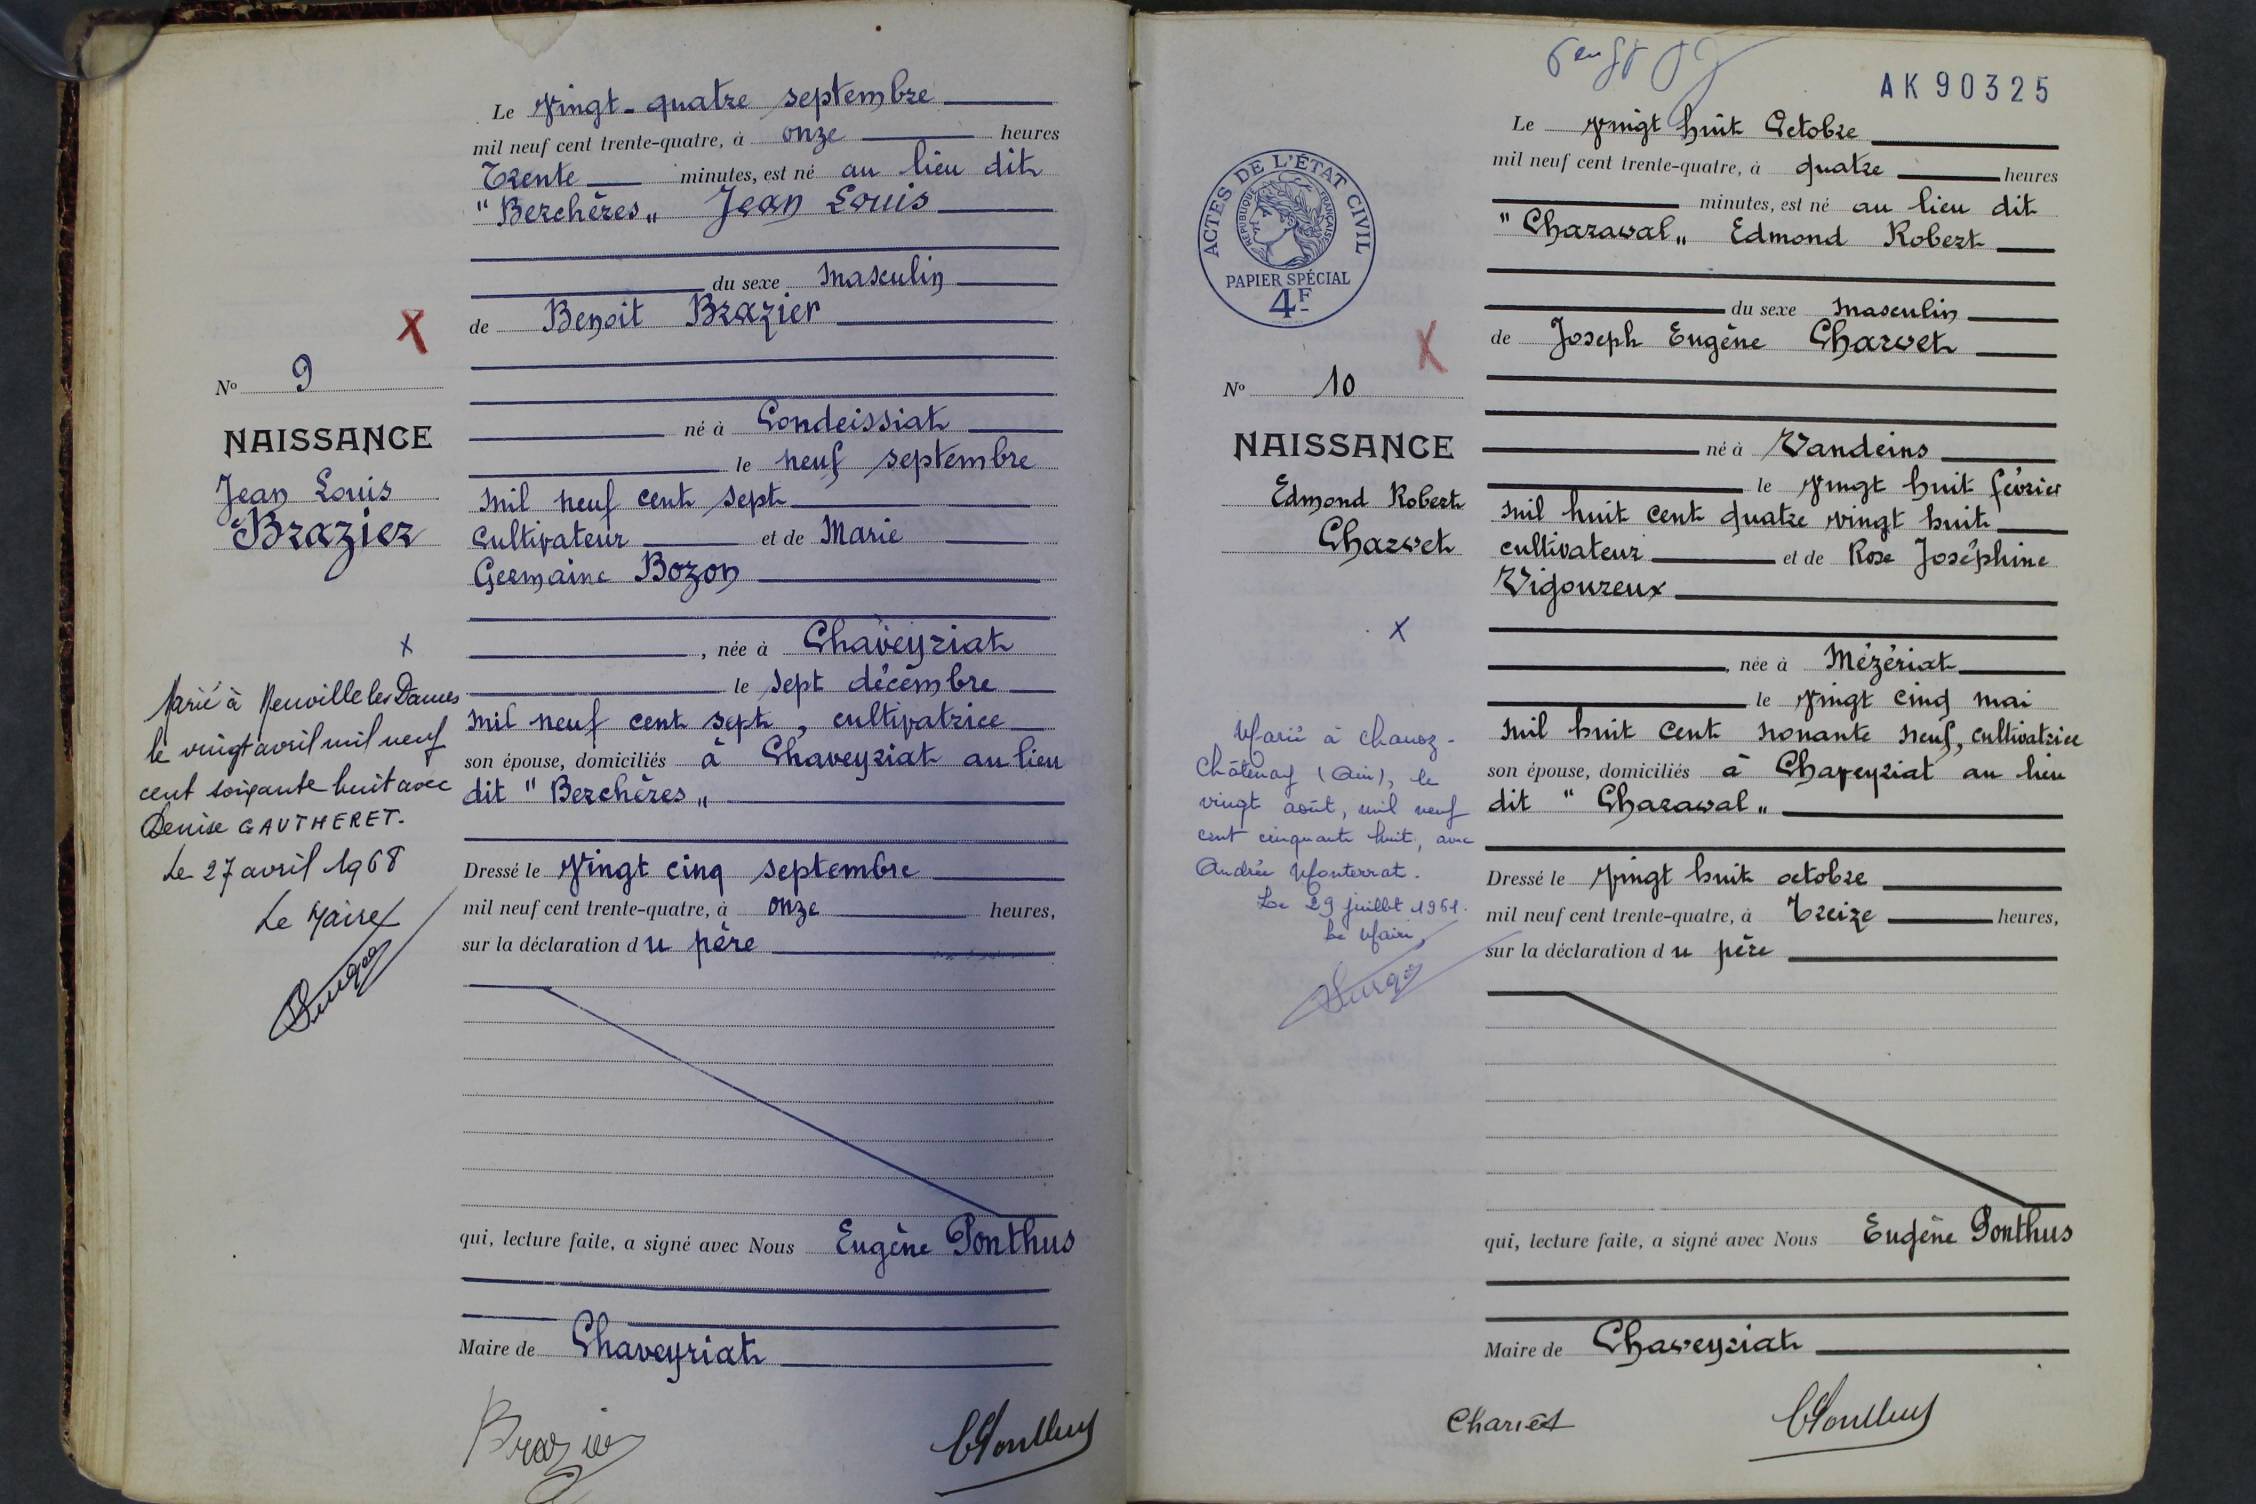 Le Vingt-quatre septembre
mil neuf cent trente-quatre, à onze heures
Trente minutes, est né au lieu dit
"Berchères" Jean Louis
du sexe masculin
de Benoit Brazier
né à Condeissiat
le neuf septembre
mil neuf cent sept
cultivateur et de Marie
Germaine Bozon
, née à Chaveyriat
le sept décembre
mil neuf cent sept, cultivatrice
son épouse, domiciliés à Chaveyriat au lieu
dit "Berchères"
Dressé le Vingt cinq septembre
mil neuf cent trente-quatre, à onze heures,
sur la déclaration du père
qui, lecture faite, a signé avec Nous Eugène Ponthus
Maire de Chaveyriat
Brazier
No 9
NAISSANCE
Jean Louis
Brazier
x
Marié à Neuville les Dames
le vingt avril mil neuf
cent soixante huit avec
Denise GAUTHERET.
Le 27 avril 1968
Le Maire
AK 90325
ACTES DE L'ÉTAT CIVIL
RÉPUBLIQUE FRANÇAISE
PAPIER SPÉCIAL
4F
No 10
NAISSANCE
Edmond Robert
Charvet
x
Marié à Chanoz-
Châtenay (Ain), le
vingt août, mil neuf
cent cinquante huit, avec
Andrée Monterrat.
Le 29 juillet 1961.
Le Maire,
Le Vingt huit Octobre
mil neuf cent trente-quatre, à quatre heures
minutes, est né au lieu dit
"Charaval" Edmond Robert
du sexe masculin
de Joseph Eugène Charvet
né à Vandeins
le Vingt huit février
mil huit cent quatre vingt huit
cultivateur et de Rose Joséphine
Vigoureux
, née à Mézériat
le Vingt cinq mai
mil huit cent nonante neuf, cultivatrice
son épouse, domiciliés à Chaveyriat au lieu
dit "Charaval"
Dressé le Vingt huit octobre
mil neuf cent trente-quatre, à Treize heures,
sur la déclaration du père
qui, lecture faite, a signé avec Nous Eugène Ponthus
Maire de Chaveyriat
Charvet